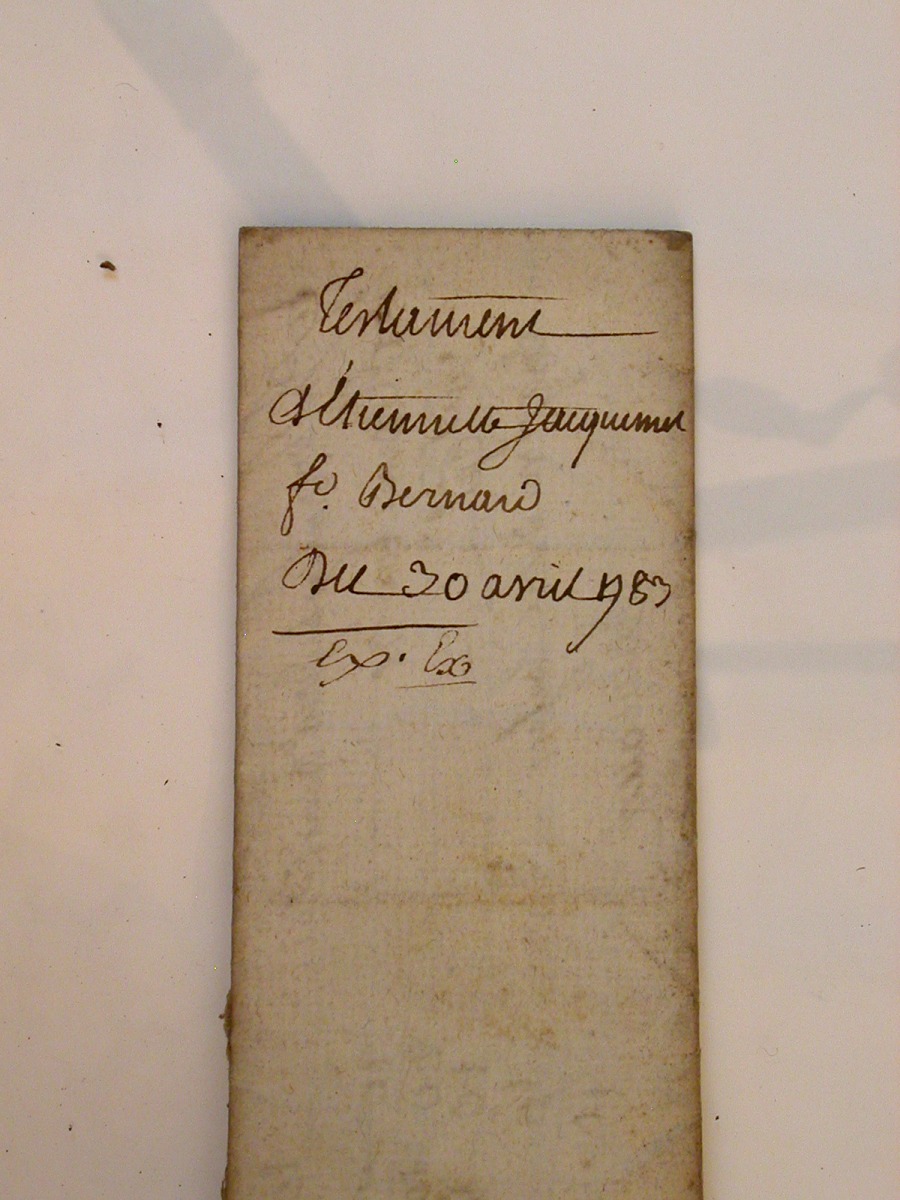 Testament
d'Etiennette Jacquemet
fe. Bernard
Du 30 avril 1783
Ex. Ex